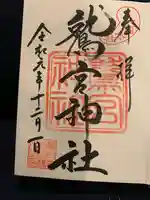 奉拝
鷲宮神社
令和元年十二月一日